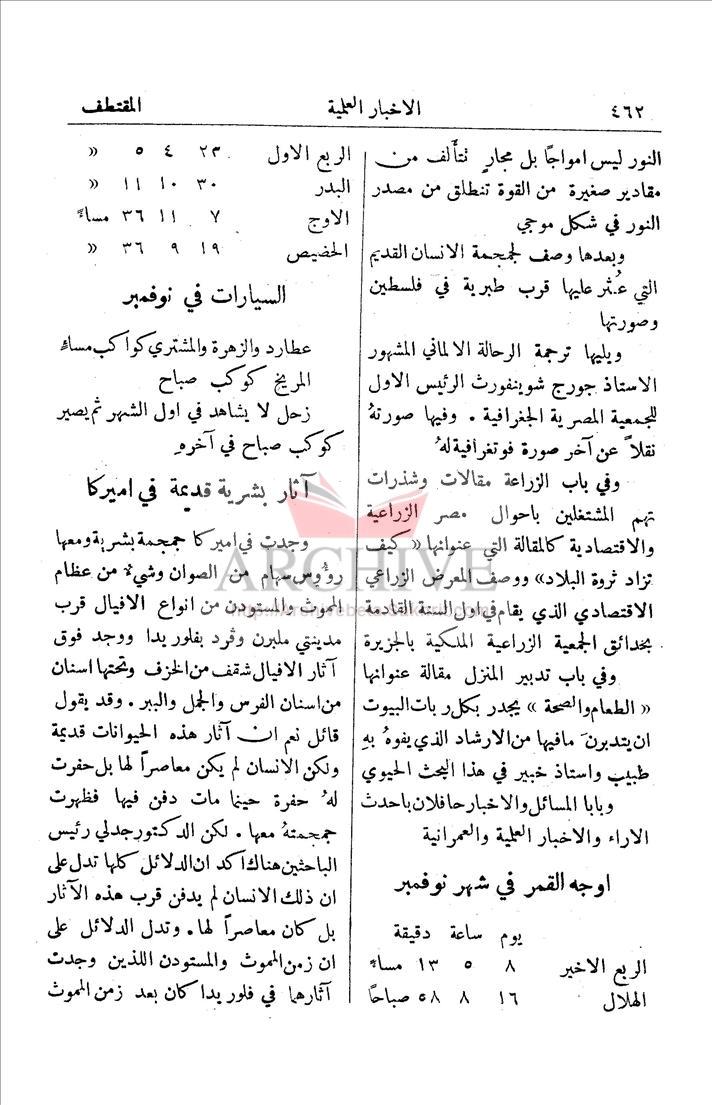 ٤٦٢ الاخبار العلمية المقتطف
النور ليس امواجًا بل مجارٍ تتألف من
مقادير صغيرة من القوة تنطلق من مصدر
النور في شكل موجي
وبعدها وصف لجمجمة الانسان القديم
التي عُثر عليها قرب طبرية في فلسطين
وصورتها
ويليها ترجمة الرحالة الالماني المشهور
الاستاذ جورج شوينفورث الرئيس الاول
للجمعية المصرية الجغرافية . وفيها صورتهُ
نقلاً عن آخر صورة فوتغرافية لهُ
وفي باب الزراعة مقالات وشذرات
تهم المشتغلين باحوال مصر الزراعية
والاقتصادية كالمقالة التي عنوانها « كيف
تزاد ثروة البلاد» ووصف المعرض الزراعي
الاقتصادي الذي يقام في اول السنة القادمة
بحدائق الجمعية الزراعية الملكية بالجزيرة
وفي باب تدبير المنزل مقالة عنوانها
« الطعام والصحة » يجدر بكل ربات البيوت
ان يتدبرنَ مافيها من الارشاد الذي يفوهُ بهِ
طبيب واستاذ خبير في هذا البحث الحيوي
وبابا المسائل والاخبار حافلان باحدث
الاراء والاخبار العلمية والعمرانية
اوجه القمر في شهر نوفمبر
يوم ساعة دقيقة
الربع الاخير ٨ ٥ ١٣ مساءً
الهلال ١٦ ٨ ٥٨ صباحًا
الربع الاول ٢٣ ٤ ٥ »
البدر ٣٠ ١٠ ١١ »
الاوج ٧ ١١ ٣٦ مساءً
الحضيض ١٩ ٩ ٣٦ »
السيارات في نوفمبر
عطارد والزهرة والمشتري كواكب مساءٍ
المريخ كوكب صباح
زحل لا يشاهد في اول الشهر ثم يصير
كوكب صباح في آخرهِ
آثار بشرية قديمة في اميركا
وجدت في اميركا جمجمة بشرية ومعها
رؤوس سهام من الصوان وشيء من عظام
الموث والمستودن من انواع الافيال قرب
مدينتي ملبرن وڤرد بفلوريدا ووجد فوق
آثار الافيال شقف من الخزف وتحتها اسنان
من اسنان الفرس والجمل والببر . وقد يقول
قائل نعم ان آثار هذه الحيوانات قديمة
ولكن الانسان لم يكن معاصراً لها بل حفرت
لهُ حفرة حينما مات دفن فيها فظهرت
جمجمتهُ معها . لكن الدكتور جدلي رئيس
الباحثين هناك اكد ان الدلائل كلها تدل على
ان ذلك الانسان لم يدفن قرب هذه الآثار
بل كان معاصراً لها . وتدل الدلائل على
ان زمن الموث والمستودن اللذين وجدت
آثارهما في فلوريدا كان بعد زمن الموث
ARCHIVE